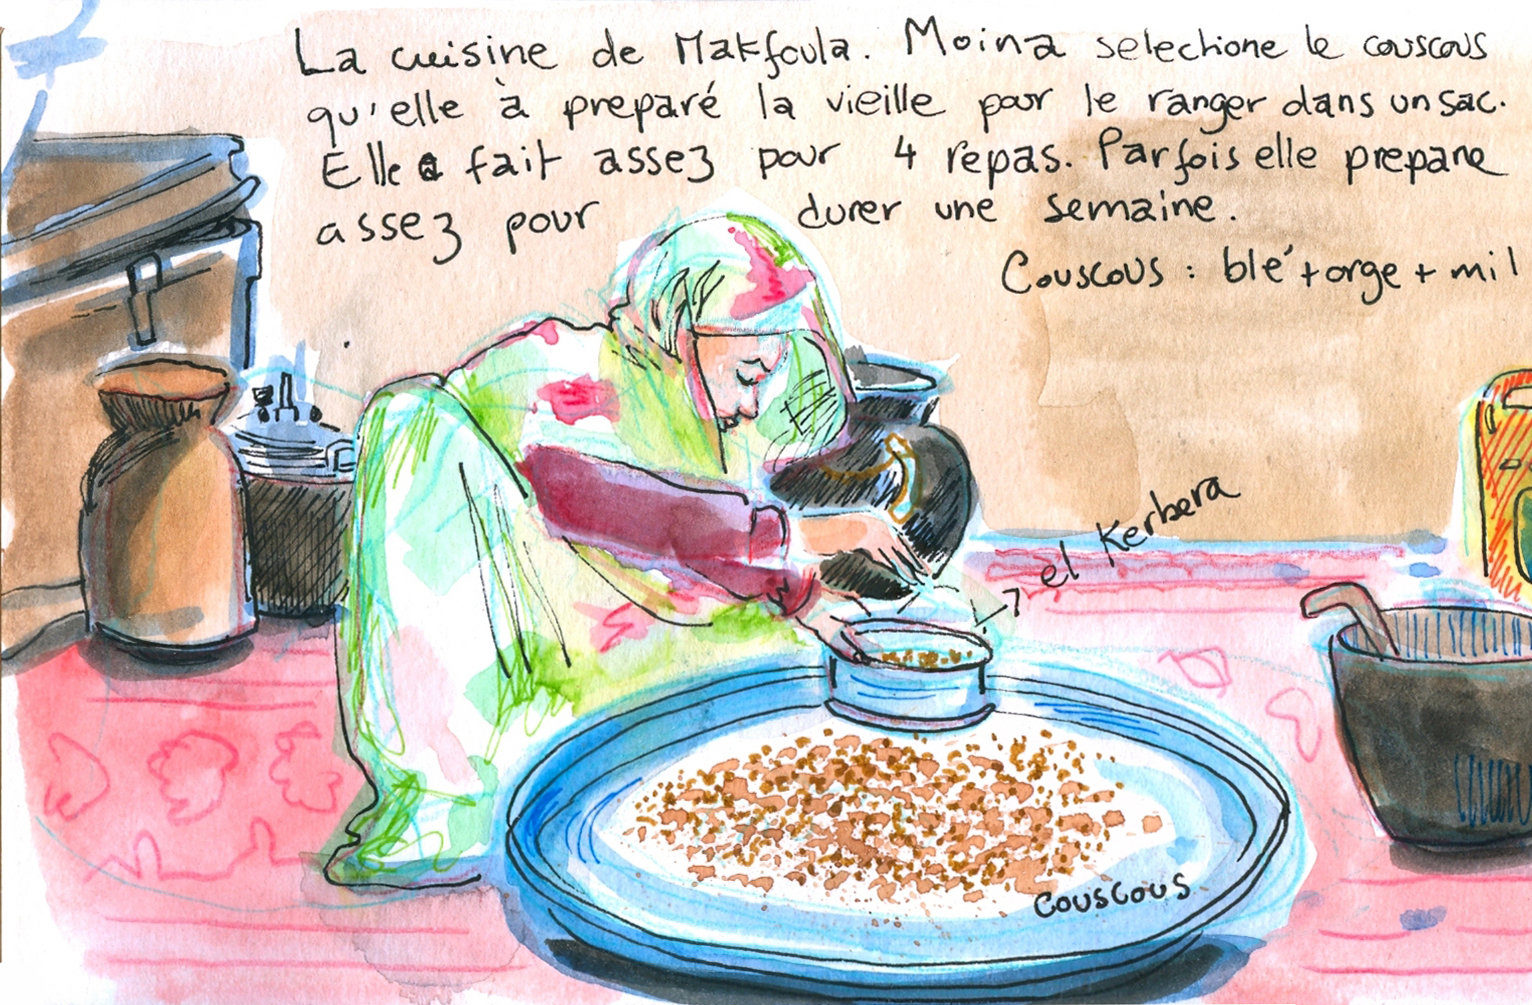 La cuisine de Makfoula. Moina selectione le couscous
qu'elle à preparé la vieille pour le ranger dans un sac.
Elle a fait assez pour 4 repas. Parfois elle prepare
assez pour durer une semaine.
Couscous : blé + orge + mil
el Kerbera
couscous